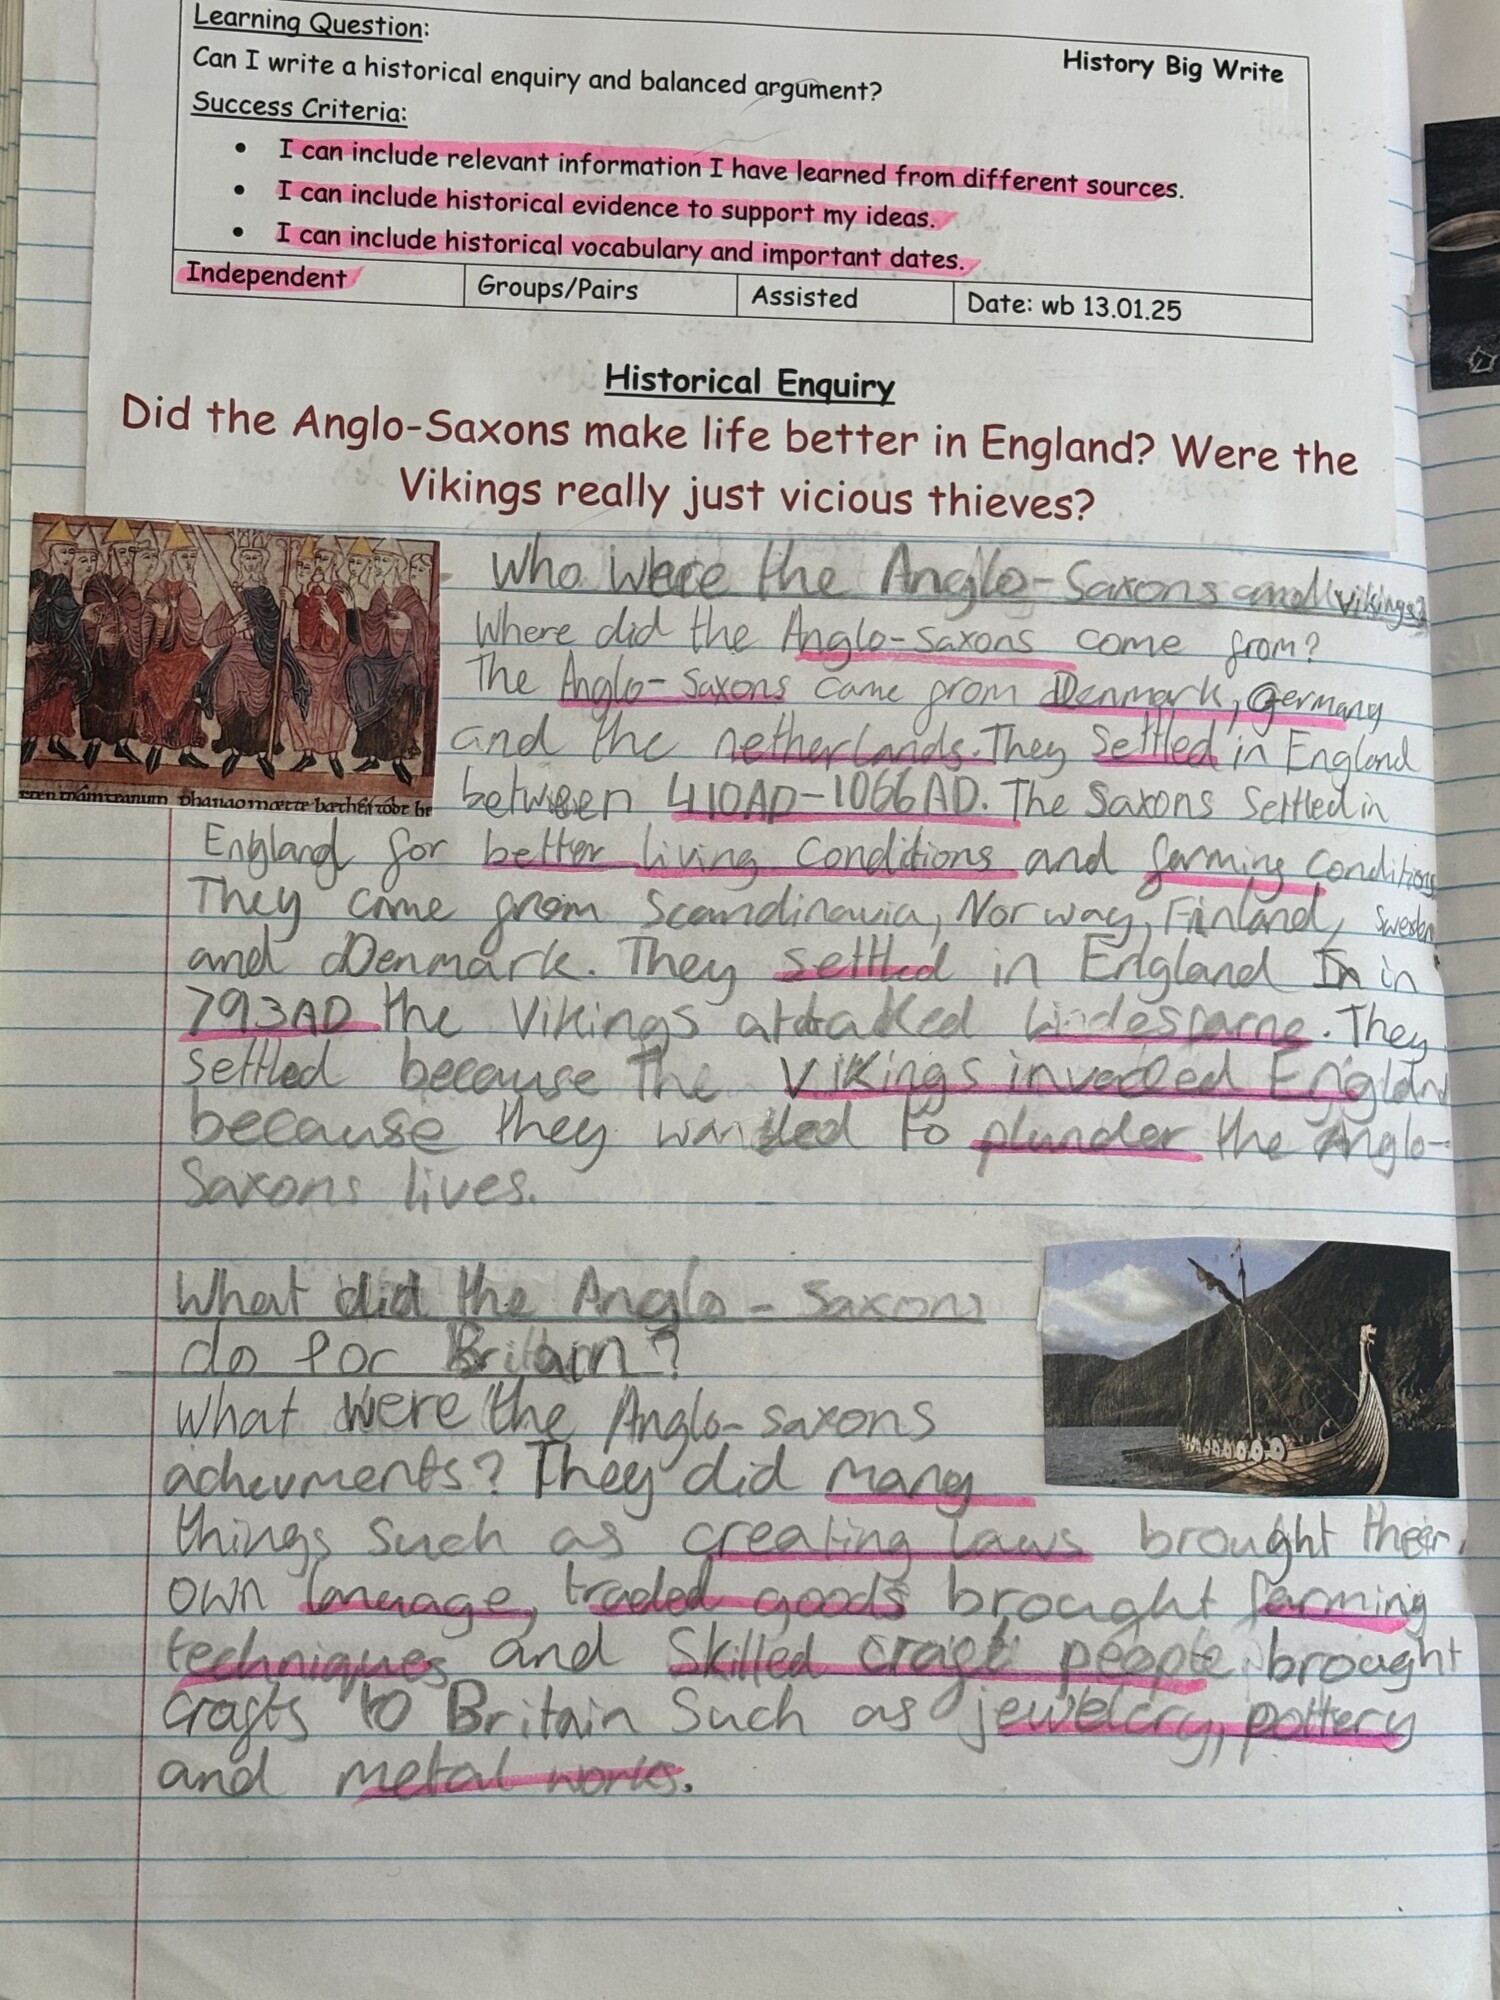 Learning Question:
History Big Write
Can I write a historical enquiry and balanced argument?
Success Criteria:
• I can include relevant information I have learned from different sources.
• I can include historical evidence to support my ideas.
• I can include historical vocabulary and important dates.
Independent Groups/Pairs Assisted Date: wb 13.01.25
Historical Enquiry
Did the Anglo-Saxons make life better in England? Were the
Vikings really just vicious thieves?
Who were the Anglo-Saxons and Vikings?
Where did the Anglo-Saxons come from?
The Anglo-Saxons came from Denmark, Germany
and the netherlands. They Settled in England
between 410AD-1066AD. The Saxons Settled in
England for better living conditions and farming conditions
They came from Scandinavia, Norway, Finland, Sweden
and Denmark. They settled in England In in
793AD the Vikings attaked Lindesfarne. They
settled because the Vikings inveded England
because they wanted to plunder the Anglo-
Saxons lives.
What did the Anglo-Saxons
do for Britain?
What were the Anglo-saxons
achevments? They did many
things Such as creating laws brought their
own lanuage, traded goods brought farming
techniques and Skilled craft people brought
crafts to Britain Such as jewelery, pottery
and metal works.